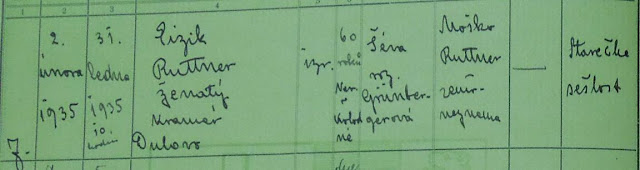 1 2 3
2. února 1935
31. ledna 1935 10. hodin
Eizik Ruttner ženatý kramář Dulovo
izr.
60 roků Nar. v Kolod né
Séra roz. Grünber- gerová
Moško Ruttner zem- neznama
—
Stařecká sešlost
7.